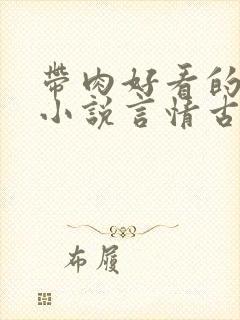 带肉好看的
小说言情古
布履